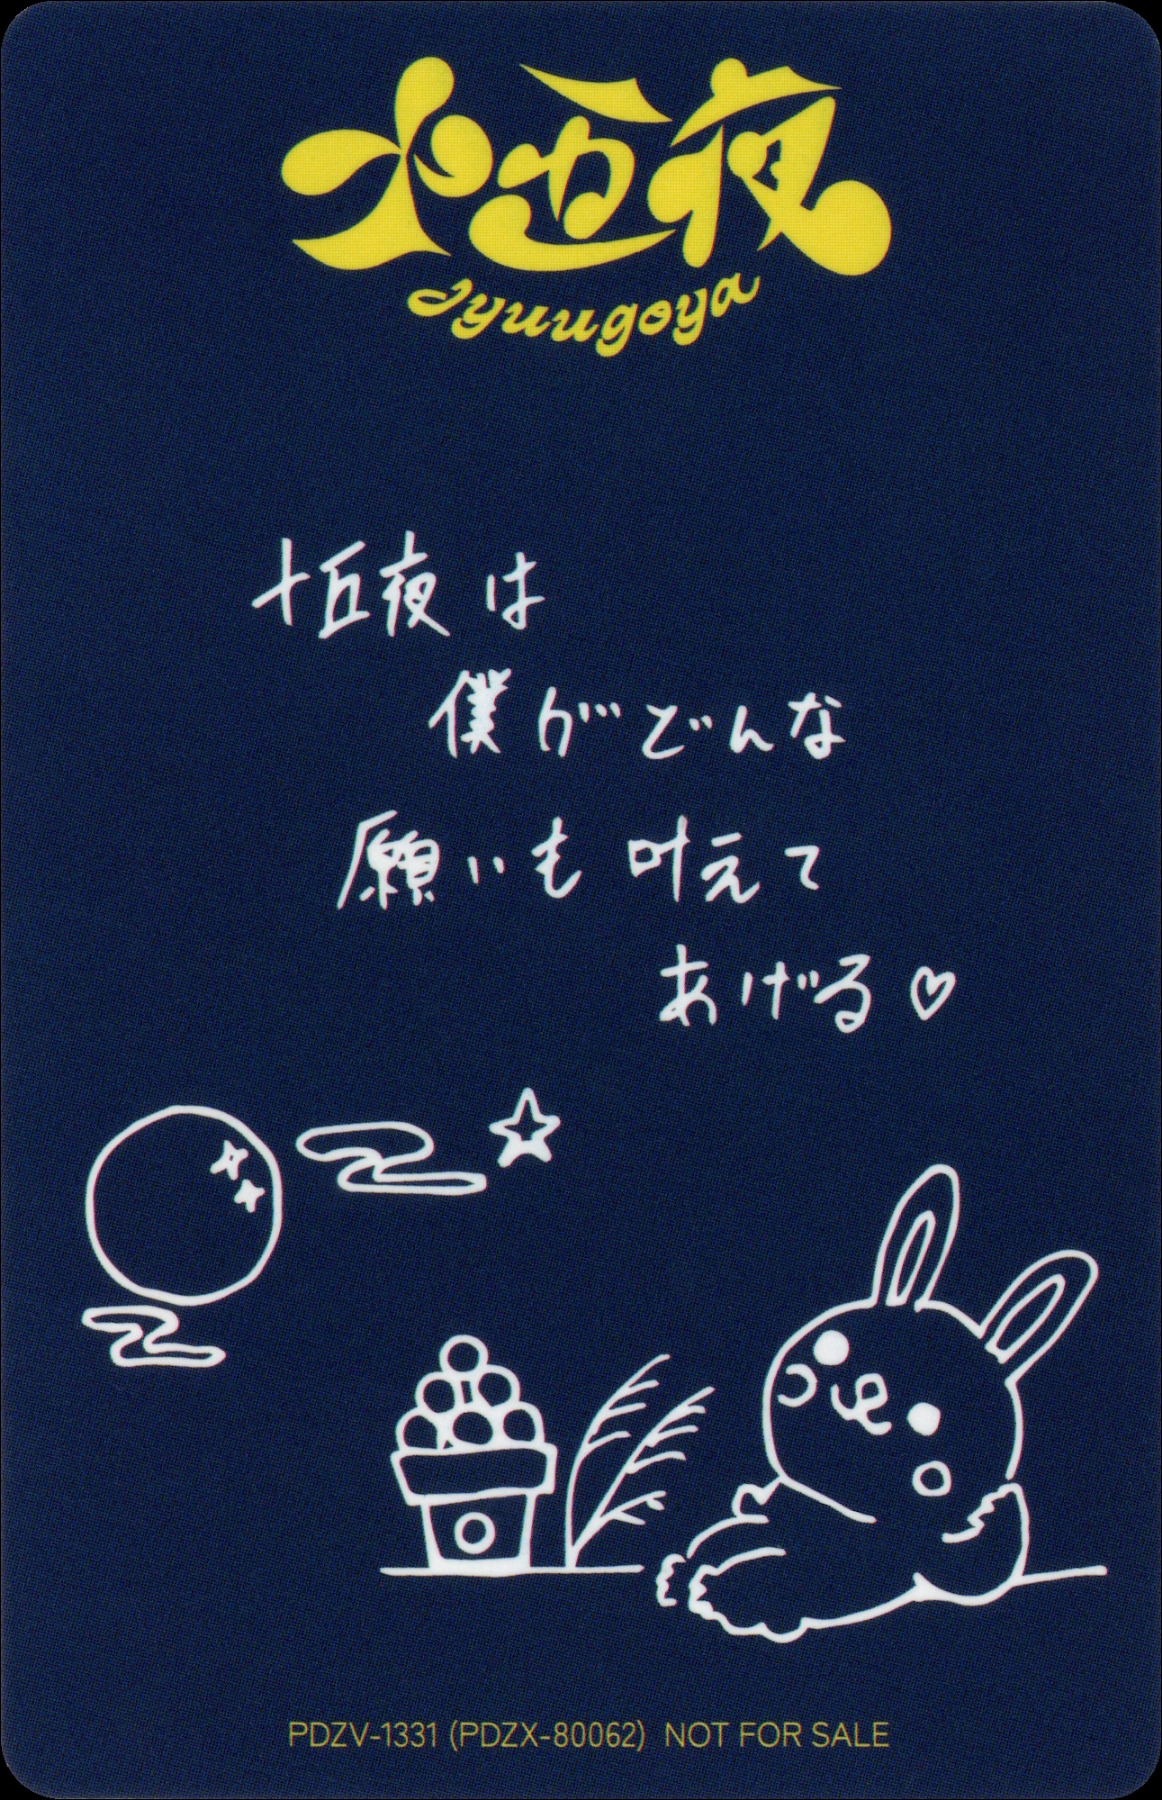 十五夜
Jyuugoya
十五夜は
僕がどんな
願いも叶えて
あげる♡
PDZV-1331 (PDZX-80062) NOT FOR SALE